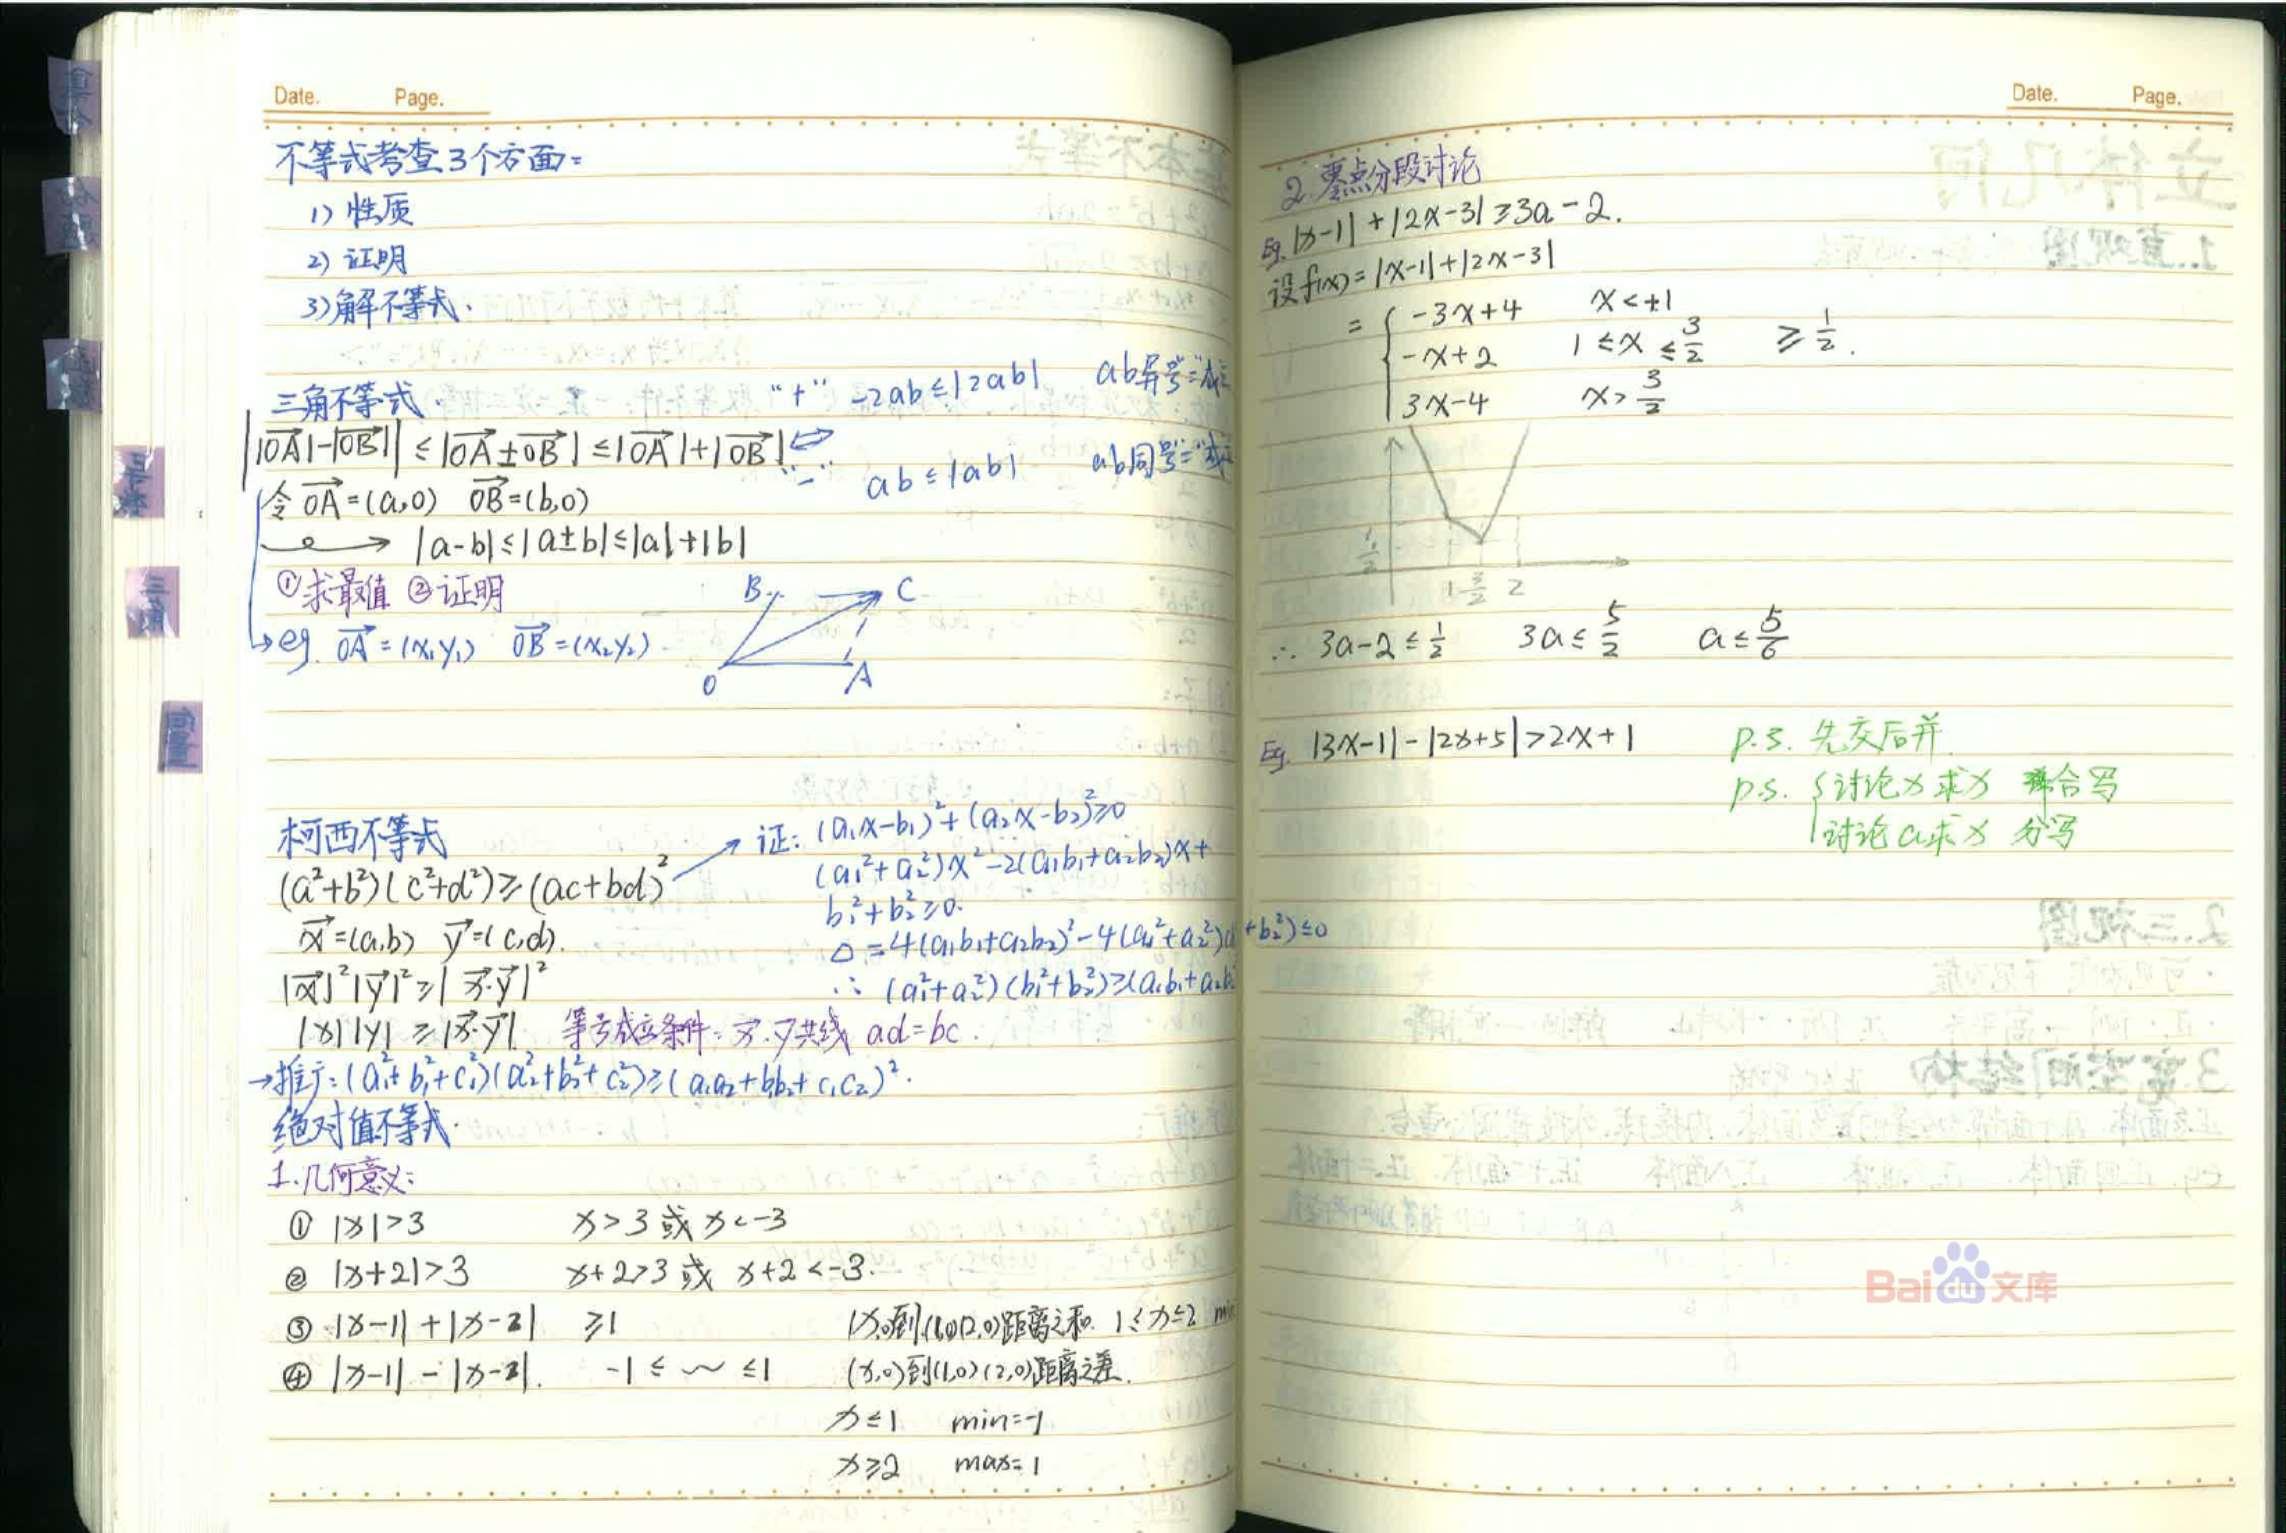 Date. Page.
不等式考查3个方面:
1) 性质
2) 证明
3) 解不等式.
三角不等式.
"+" -2ab≤|2ab| ab异号"="成立
||OA|-|OB|| ≤ |OA±OB| ≤ |OA|+|OB| ⇔
"-" ab≤|ab| ab同号"="成立
令 OA=(a,0) OB=(b,0)
→ |a-b|≤|a±b|≤|a|+|b|
①求最值 ②证明
B C
→eg. OA=(x₁y₁) OB=(x₂y₂)
O A
柯西不等式
(a²+b²)(c²+d²)≥(ac+bd)²
x=(a,b) y=(c,d).
|x|²|y|²≥|x·y|²
|x||y|≥|x·y|. 等号成立条件: x·y共线 ad=bc.
→推广: (a₁²+b₁²+c₁²)(a₂²+b₂²+c₂²)≥(a₁a₂+b₁b₂+c₁c₂)².
证: (a₁x-b₁)²+(a₂x-b₂)²≥0
(a₁²+a₂²)x²-2(a₁b₁+a₂b₂)x+
b₁²+b₂²≥0.
△=4(a₁b₁+a₂b₂)²-4(a₁²+a₂²)( +b₂²)≤0
∴ (a₁²+a₂²)(b₁²+b₂²)≥(a₁b₁+a₂b₂
绝对值不等式.
1.几何意义:
① |x|>3 x>3 或 x<-3
② |x+2|>3 x+2>3 或 x+2<-3.
③ |x-1|+|x-2| ≥1 (x,0)到(1,0)(2,0)距离之和. 1≤x≤2 min
④ |x-1|-|x-2|. -1≤ ~ ≤1 (x,0)到(1,0)(2,0)距离之差.
x≤1 min=-1
x≥2 max=1
Date. Page.
2.零点分段讨论
Eg. |x-1|+|2x-3|≥3a-2.
设f(x)=|x-1|+|2x-3|
= { -3x+4 x<1
-x+2 1≤x≤3/2 ≥1/2.
3x-4 x>3/2
1/2
1 3/2 2
∴ 3a-2≤1/2 3a≤5/2 a≤5/6
Eg. |3x-1|-|2x+5|>2x+1 p.s. 先交后并
p.s. {讨论x求x 合写
讨论a求x 分写
Bai du 文库